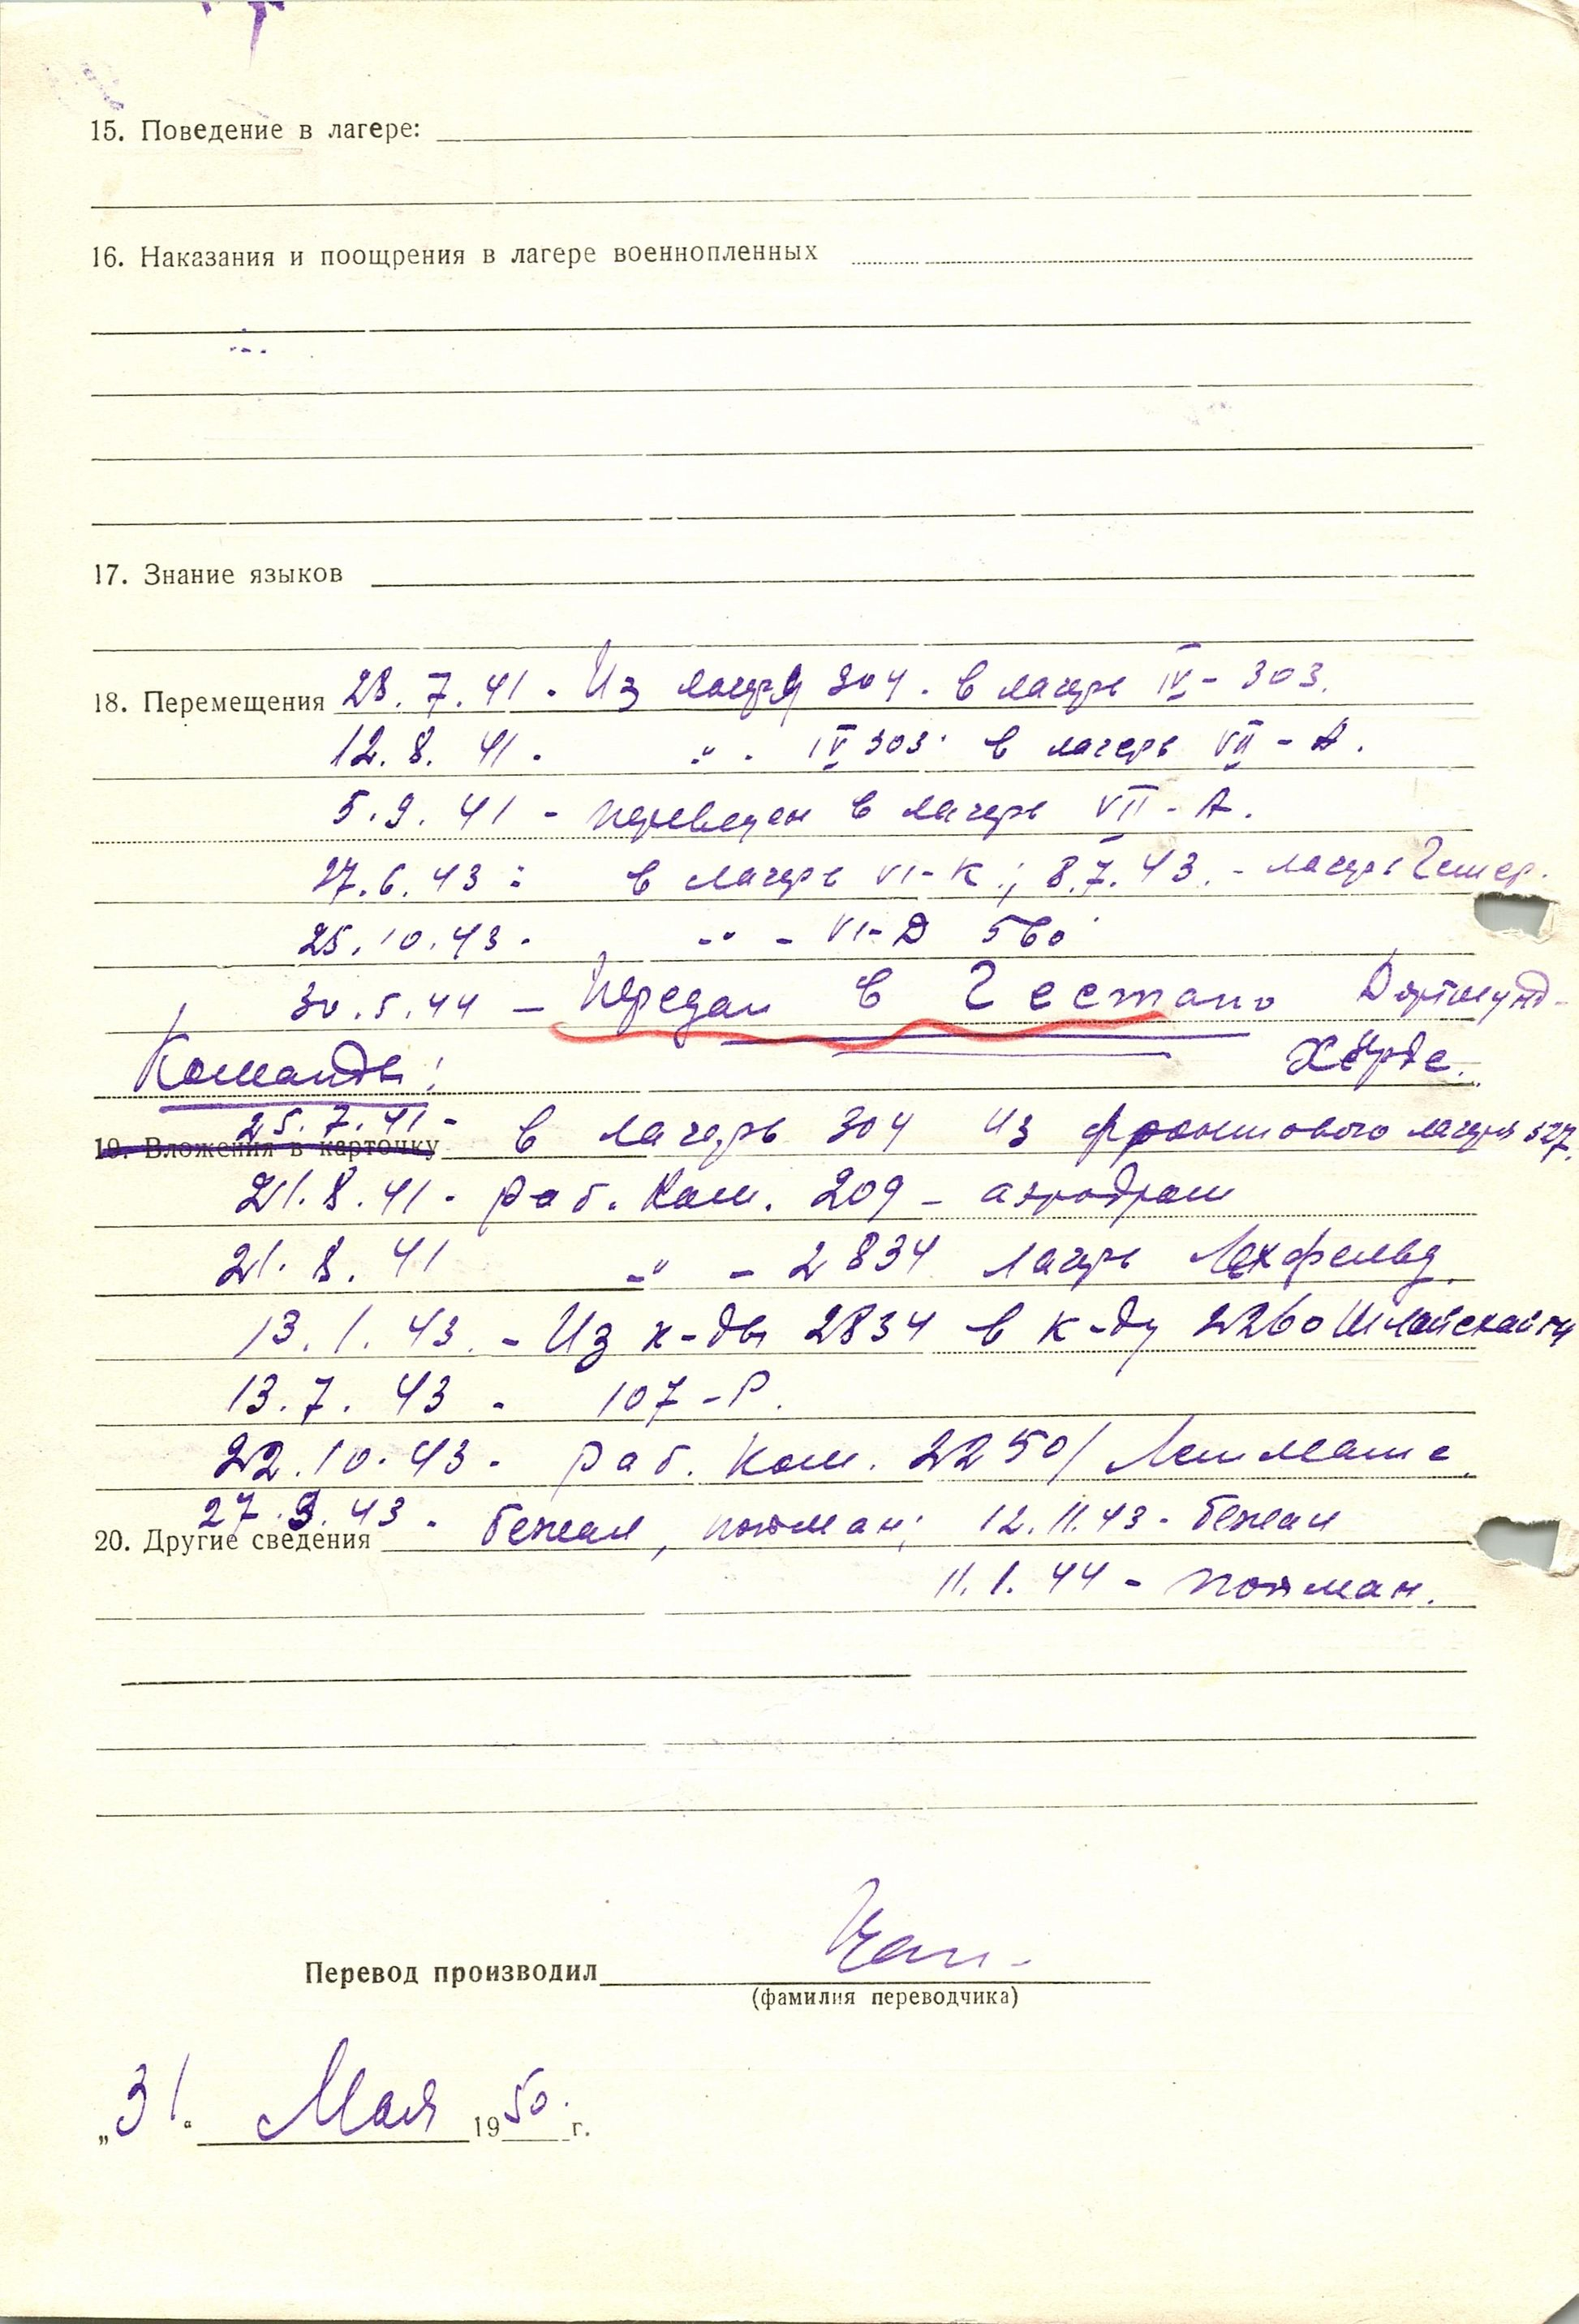 15. Поведение в лагере:
16. Наказания и поощрения в лагере военнопленных
17. Знание языков
18. Перемещения 28.7.41. Из лагеря 304. в лагерь IV-303.
12.8.41. -"- IV 303. в лагерь VII-А.
5.9.41 - переведен в лагерь VII-А.
27.6.43: в лагерь VI-К; 8.7.43. - лагерь Гемер.
25.10.43. -"- VI-Д
30.5.44 - Передан в Гестапо Дортмунд-
Хёрде.
Команды:
25.7.41- в лагерь 304 из фронтового лагеря 327.
19. Вложения в карточку
21.8.41. раб. ком. 209 - аэродром
21.8.41 -"- 2834 лагерь Лехфельд.
13.1.43. - Из к-ды 2834 в к-ду 2260
13.7.43. 107-Р.
22.10.43. раб. ком. 2250/ Летмате.
27.9.43. бежал, пойман; 12.11.43. бежал
20. Другие сведения
11.1.44 - пойман.
Перевод производил
(фамилия переводчика)
„31“ Мая 1950. г.